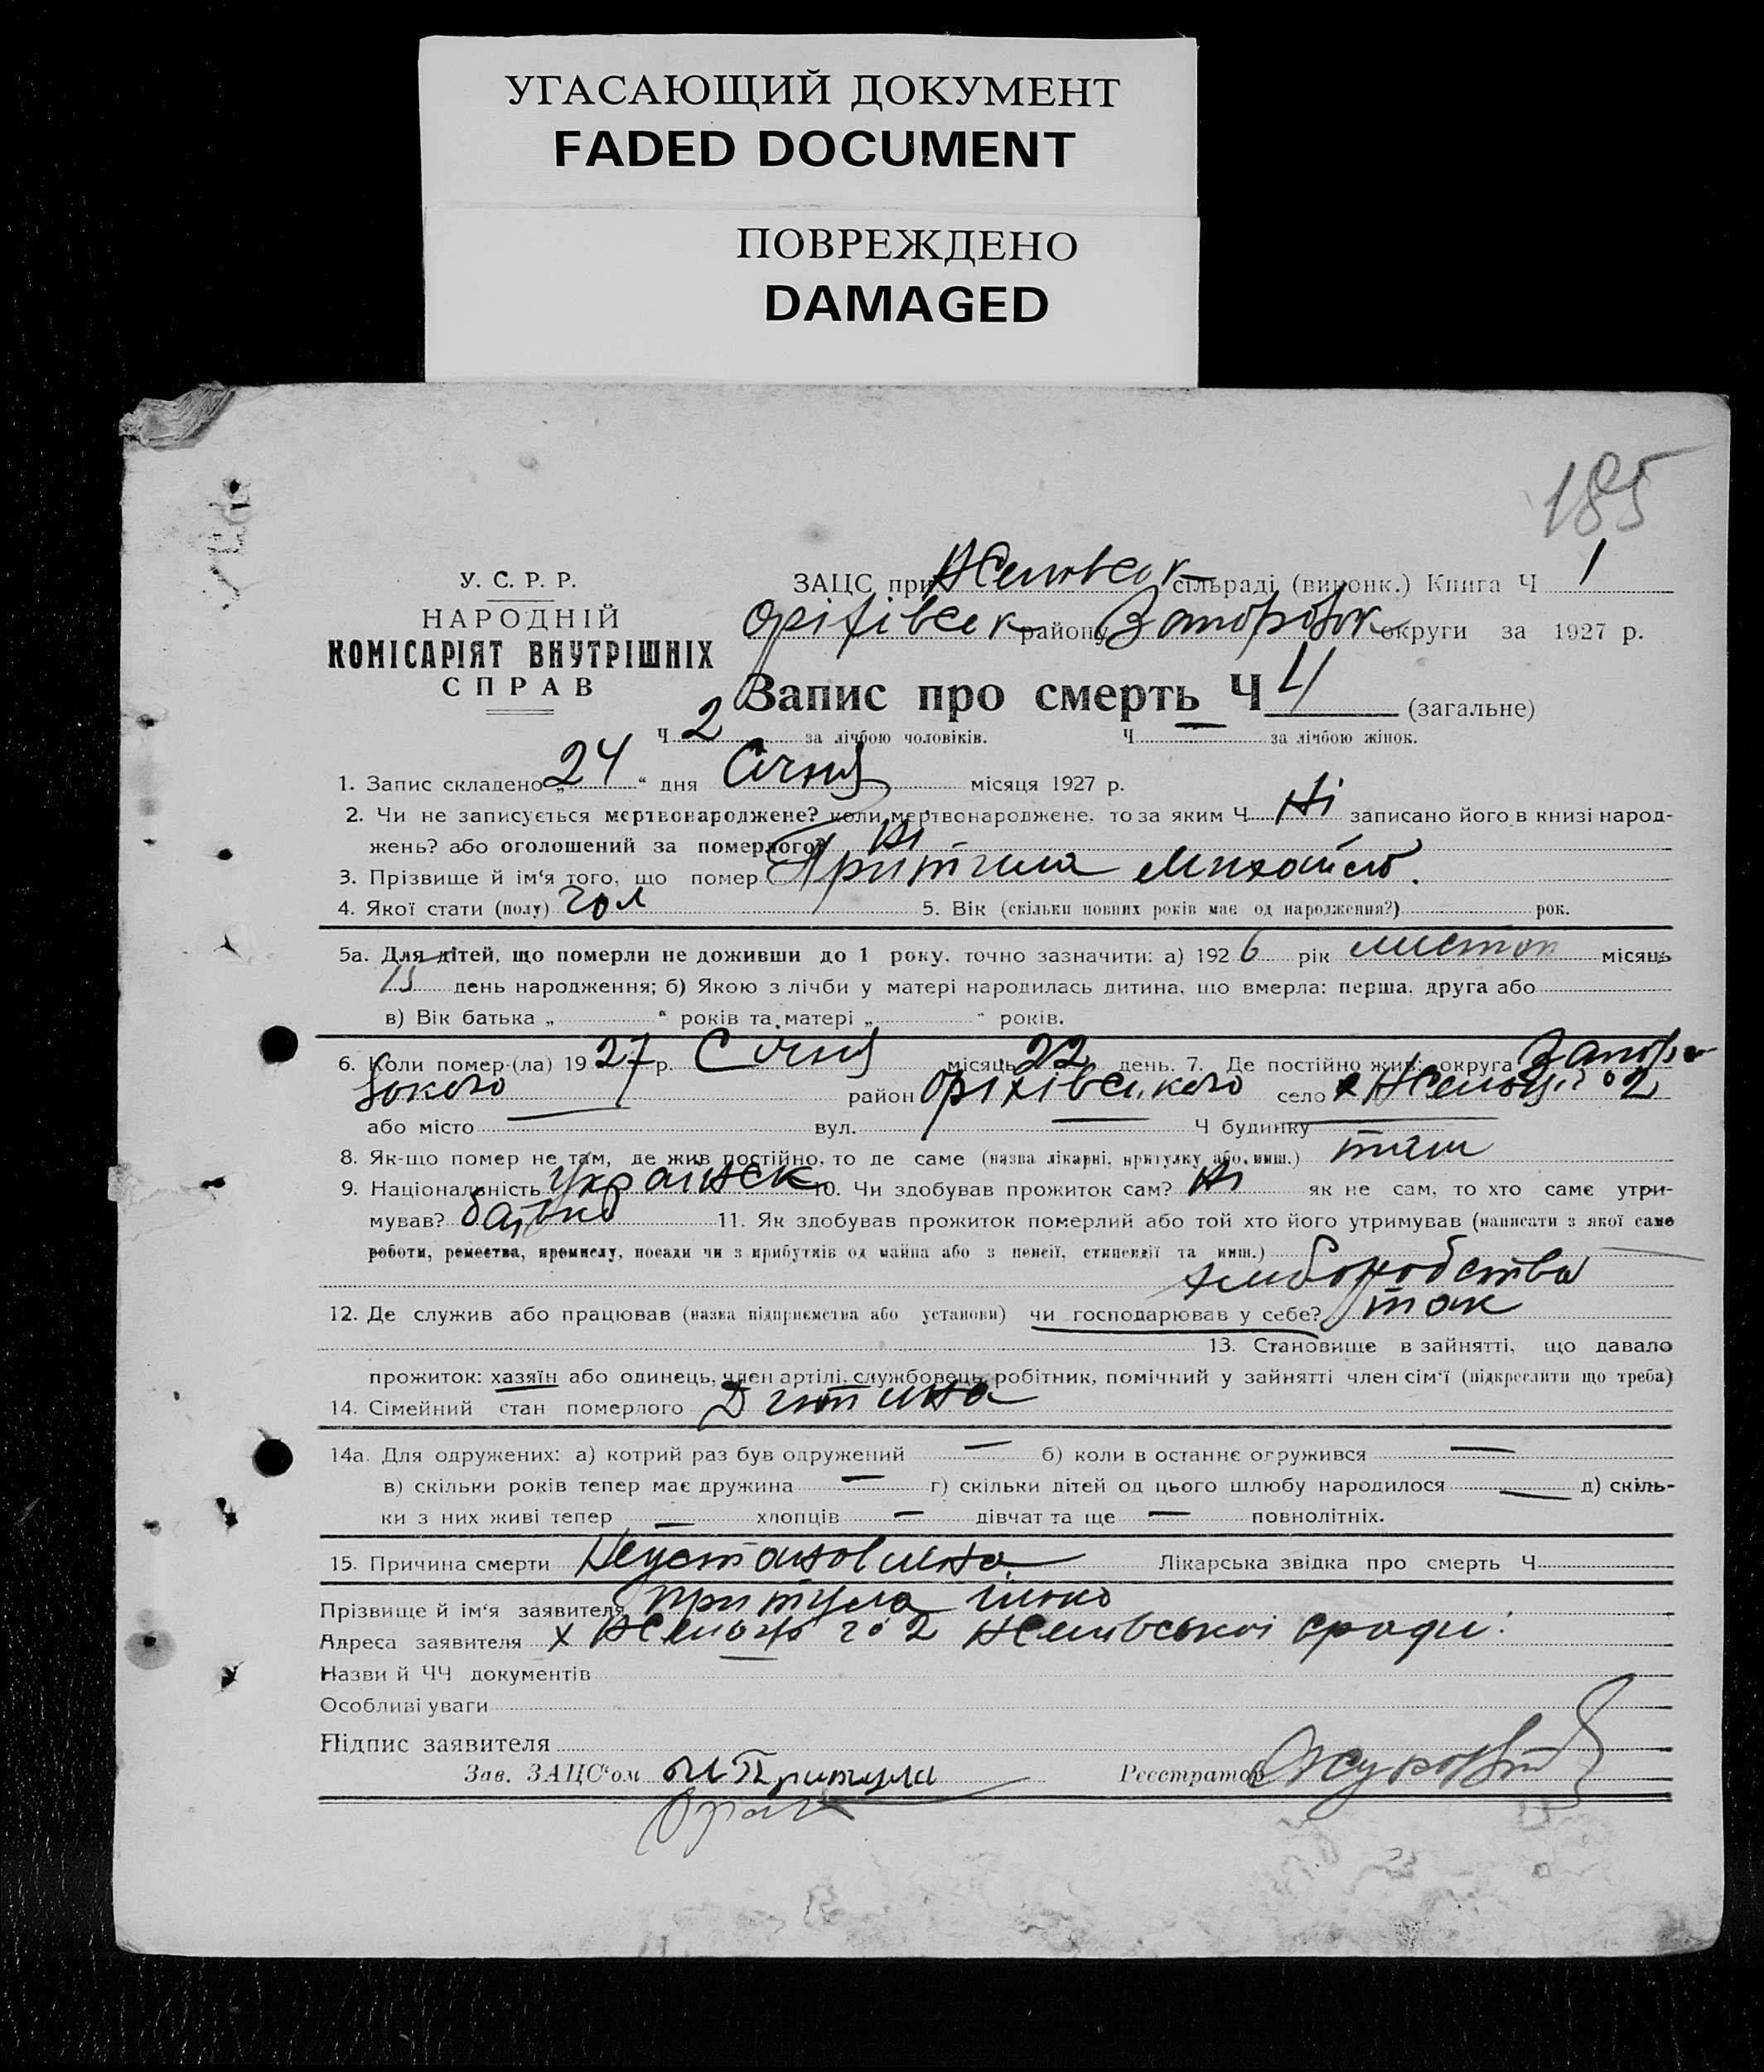 УГАСАЮЩИЙ ДОКУМЕНТ
FADED DOCUMENT
ПОВРЕЖДЕНО
DAMAGED
185
У. С. Р. Р.
НАРОДНІЙ
КОМІСАРІЯТ ВНУТРІШНІХ
СПРАВ
ЗАЦС при сільраді (виконк.) Книга Ч 1
Оріхівськ району Запорізьк округи за 1927 р.
Запис про смерть Ч 4 (загальне)
Ч 2 за лічбою чоловіків. Ч за лічбою жінок.
1. Запис складено „ 24 “ дня Січня місяця 1927 р.
2. Чи не записується мертвонароджене? коли мертвонароджене, то за яким Ч Ні записано його в книзі народ-
жень? або оголошений за померлого? Ні
3. Прізвище й ім‘я того, що помер Притула Михайло.
4. Якої стати (полу) чол 5. Вік (скільки повних років має од народження?) рок.
5а. Для дітей, що померли не доживши до 1 року, точно зазначити: а) 192 6 рік листоп місяць
15 день народження; б) Якою з лічби у матері народилась дитина, що вмерла: перша, друга або
в) Вік батька „ “ років та матері „ “ років.
6. Коли помер-(ла) 19 27 р. Січня місяць 22 день. 7. Де постійно жив: округа Запорі-
зького район Оріхівського село х № 2
або місто вул. Ч будинку
8. Як-що помер не там, де жив постійно, то де саме (назва лікарні, притулку або инш.)
9. Національність Українськ 10. Чи здобував прожиток сам? Ні як не сам, то хто саме утри-
мував? батько 11. Як здобував прожиток померлий або той хто його утримував (написати з якої саме
роботи, ремества, промислу, посади чи з прибутків од майна або з пенсії, стипендії та инш.)
хліборобства
12. Де служив або працював (назва підприємства або установи) чи господарював у себе? так
13. Становище в зайнятті, що давало
прожиток: хазяїн або одинець, член артілі, службовець, робітник, помічний у зайнятті член сім‘ї (підкреслити що треба)
14. Сімейний стан померлого Дитина
14а. Для одружених: а) котрий раз був одружений — б) коли в останнє одружився —
в) скільки років тепер має дружина — г) скільки дітей од цього шлюбу народилося — д) скіль-
ки з них живі тепер — хлопців — дівчат та ще — повнолітніх.
15. Причина смерти Неустановлина Лікарська звідка про смерть Ч
Прізвище й ім‘я заявителя Притула
Адреса заявителя х № 2 сради
Назви й ЧЧ документів
Особливі уваги
Підпис заявителя
Зав. ЗАЦС‘ом Притула Реєстратор